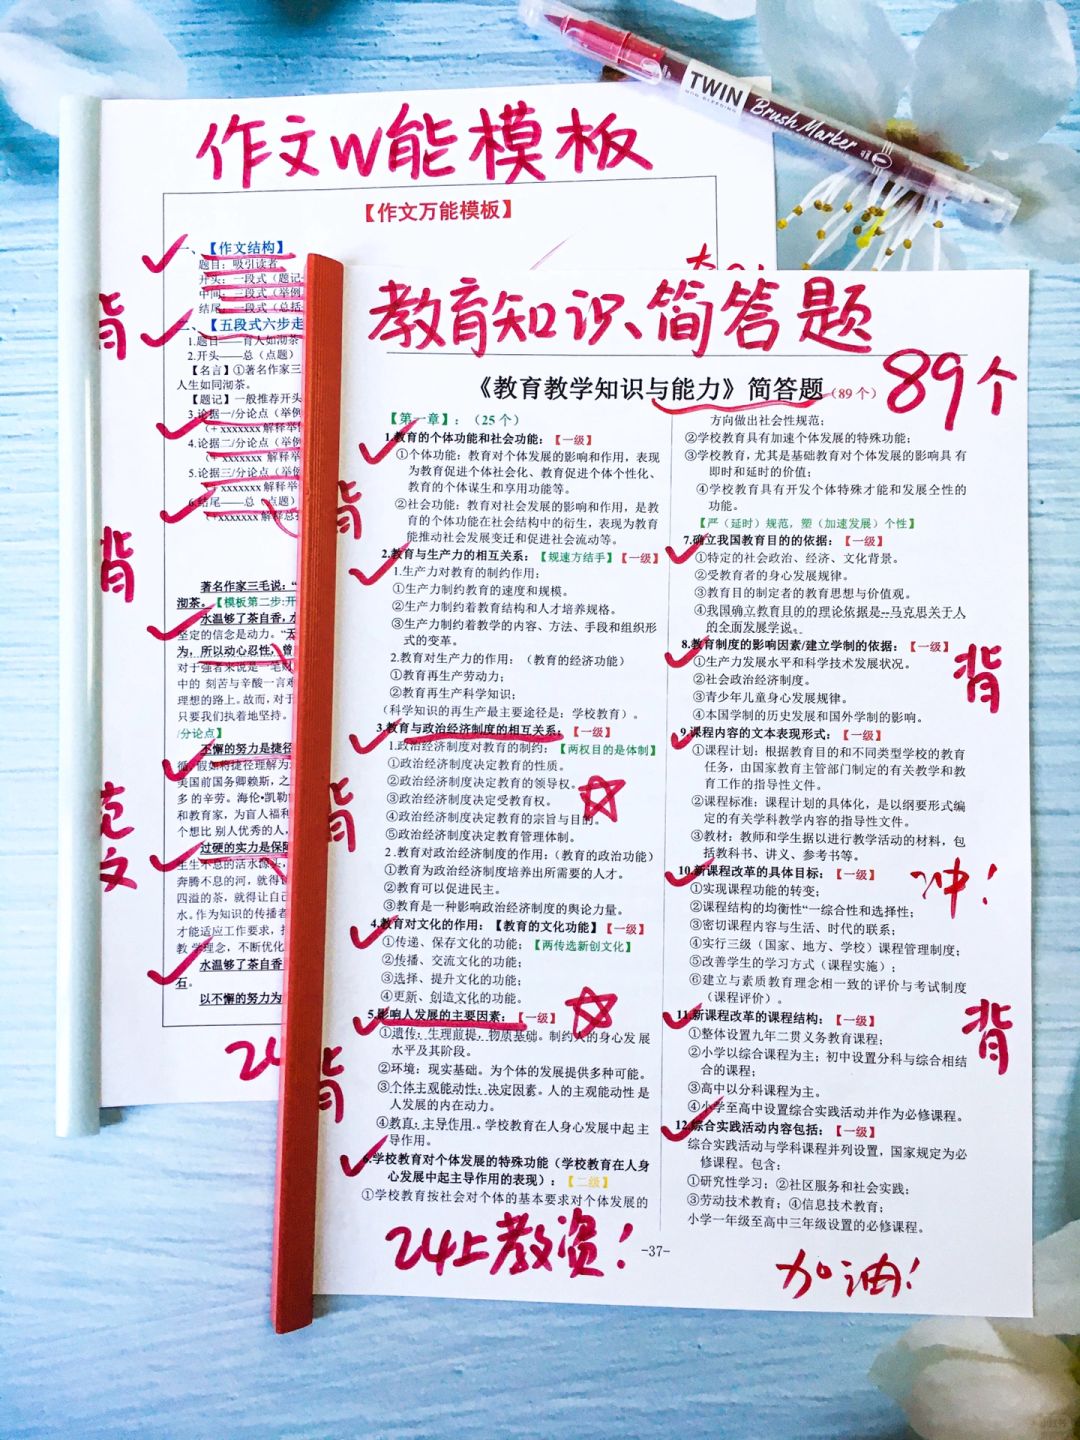 TWIN
NON BLEEDING
Brush Marker
作文W能模板
【作文万能模板】
一、【作文结构】
题目：吸引读者
开头：一段式（题记
中间：三段式（举例
结尾：一段式（总括
二、【五段式六步走
1.题目——育人如沏茶
2.开头——总（点题）
【名言】①著名作家三
人生如同沏茶。
【题记】一般推荐开头
3.论据一/分论点（举例
（+ xxxxxxx解释举
4.论据二/分论点（举例
（+ xxxxxxx 解释举
5.论据三/分论点（举例
（+ xxxxxxx解释举
6.结尾——总（点题）
（+xxxxxxx 解释总
著名作家三毛说：“
沏茶。【模板第二步:开
水温够了茶自香，水
坚定的信念是动力。“天
为，所以动心忍性，曾
对于强者来说是一笔财
中的 刻苦与辛酸一言难
理想的路上。故而，对于
只要我们执着地坚持。
/分论点】
不懈的努力是捷径
循，假如将捷径理解为
美国前国务卿赖斯，之
多的辛劳。海伦•凯勒
和教育家，为盲人福利
个想比 别人优秀的人，
过硬的实力是保障
生生不息的活水源头，
奔腾不息的河，就得
四溢的茶，就得让自己
水。作为知识的传播者
才能适应工作要求，
教 学理念，不断优化
水温够了茶自香
石。
以不懈的努力为
背
背
范
文
24
教育知识、简答题
89个
《教育教学知识与能力》简答题（89个）
【第一章】：（25个）
1.教育的个体功能和社会功能：【一级】
①个体功能：教育对个体发展的影响和作用，表现
为教育促进个体社会化、教育促进个体个性化、
教育的个体谋生和享用功能等。
②社会功能：教育对社会发展的影响和作用，是教
育的个体功能在社会结构中的衍生，表现为教育
能推动社会发展变迁和促进社会流动等。
2.教育与生产力的相互关系：【规速方结手】【一级】
1.生产力对教育的制约作用：
①生产力制约教育的速度和规模。
②生产力制约着教育结构和人才培养规格。
③生产力制约着教学的内容、方法、手段和组织形
式的变革。
2.教育对生产力的作用：（教育的经济功能）
①教育再生产劳动力；
②教育再生产科学知识；
（科学知识的再生产最主要途径是：学校教育）。
3.教育与政治经济制度的相互关系：【一级】
1.政治经济制度对教育的制约：【两权目的是体制】
①政治经济制度决定教育的性质。
②政治经济制度决定教育的领导权。
③政治经济制度决定受教育权。
④政治经济制度决定教育的宗旨与目的。
⑤政治经济制度决定教育管理体制。
2.教育对政治经济制度的作用：（教育的政治功能）
①教育为政治经济制度培养出所需要的人才。
②教育可以促进民主。
③教育是一种影响政治经济制度的舆论力量。
4.教育对文化的作用：【教育的文化功能】【一级】
①传递、保存文化的功能；【两传选新创文化】
②传播、交流文化的功能；
③选择、提升文化的功能；
④更新、创造文化的功能。
5.影响人发展的主要因素：【一级】
①遗传：生理前提，物质基础。制约人的身心发展
水平及其阶段。
②环境：现实基础。为个体的发展提供多种可能。
③个体主观能动性：决定因素。人的主观能动性是
人发展的内在动力。
④教育：主导作用。学校教育在人身心发展中起主
导作用。
6.学校教育对个体发展的特殊功能（学校教育在人身
心发展中起主导作用的表现）：【二级】
①学校教育按社会对个体的基本要求对个体发展的
方向做出社会性规范；
②学校教育具有加速个体发展的特殊功能；
③学校教育，尤其是基础教育对个体发展的影响具有
即时和延时的价值；
④学校教育具有开发个体特殊才能和发展全性的
功能。
【严（延时）规范，塑（加速发展）个性】
7.确立我国教育目的的依据：【一级】
①特定的社会政治、经济、文化背景。
②受教育者的身心发展规律。
③教育目的制定者的教育思想与价值观。
④我国确立教育目的的理论依据是--马克思关于人
的全面发展学说。
8.教育制度的影响因素/建立学制的依据：【一级】
①生产力发展水平和科学技术发展状况。
②社会政治经济制度。
③青少年儿童身心发展规律。
④本国学制的历史发展和国外学制的影响。
9.课程内容的文本表现形式：【一级】
①课程计划：根据教育目的和不同类型学校的教育
任务，由国家教育主管部门制定的有关教学和教
育工作的指导性文件。
②课程标准：课程计划的具体化，是以纲要形式编
定的有关学科教学内容的指导性文件。
③教材：教师和学生据以进行教学活动的材料，包
括教科书、讲义、参考书等。
10.新课程改革的具体目标：【一级】
①实现课程功能的转变；
②课程结构的均衡性“一综合性和选择性；
③密切课程内容与生活、时代的联系；
④实行三级（国家、地方、学校）课程管理制度；
⑤改善学生的学习方式（课程实施）；
⑥建立与素质教育理念相一致的评价与考试制度
（课程评价）。
11.新课程改革的课程结构：【一级】
①整体设置九年二贯义务教育课程；
②小学以综合课程为主；初中设置分科与综合相结
合的课程；
③高中以分科课程为主。
④小学至高中设置综合实践活动并作为必修课程。
12.综合实践活动内容包括：【一级】
综合实践活动与学科课程并列设置，国家规定为必
修课程。包含：
①研究性学习；②社区服务和社会实践；
③劳动技术教育；④信息技术教育；
小学一年级至高中三年级设置的必修课程。
背
背
背
背
冲！
背
24上教资！
-37-
加油！